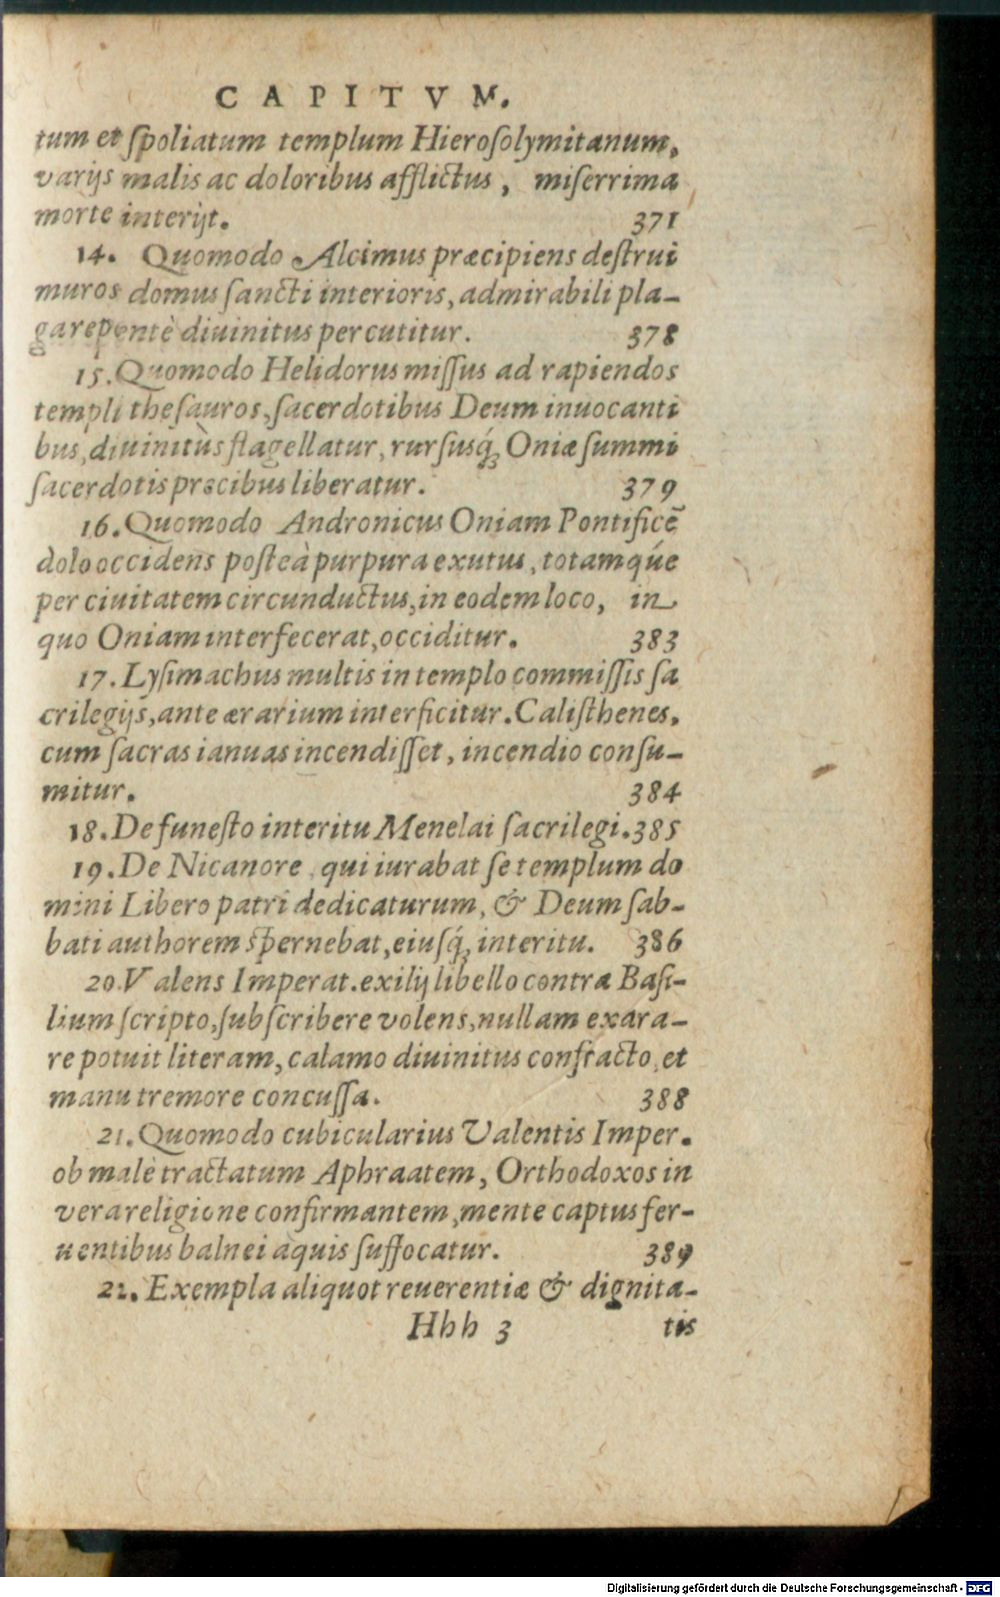 CAPITVM.
tum et ſpoliatum templum Hieroſolymitanum,
varijs malis ac doloribus afflictus, miſerrima
morte interijt. 371
14. Quomodo Alcimus præcipiens deſtrui
muros domus ſancti interioris, admirabili pla-
ga repentè diuinitus percutitur. 378
15. Quomodo Helidorus miſſus ad rapiendos
templi theſauros, ſacerdotibus Deum inuocanti
bus, diuinitùs flagellatur, rurſusq́; Oniæ ſummi
ſacerdotis præcibus liberatur. 379
16. Quomodo Andronicus Oniam Pontificē
dolo occidens poſteà purpura exutus, totamqúe
per ciuitatem circunductus, in eodem loco, in
quo Oniam interfecerat, occiditur. 383
17. Lyſimachus multis in templo commiſſis ſa
crilegijs, ante ærarium interficitur. Caliſthenes,
cum ſacras ianuas incendiſſet, incendio conſu-
mitur. 384
18. De funeſto interitu Menelai ſacrilegi. 385
19. De Nicanore, qui iurabat ſe templum do
mini Libero patri dedicaturum, & Deum ſab-
bati authorem ſpernebat, eiuſq́; interitu. 386
20. Valens Imperat. exilij libello contra Baſi-
lium ſcripto, ſubſcribere volens, nullam exara-
re potuit literam, calamo diuinitus confracto, et
manu tremore concuſſa. 388
21. Quomodo cubicularius Valentis Imper.
ob malè tractatum Aphraatem, Orthodoxos in
vera religione confirmantem, mente captus fer-
uentibus balnei aquis ſuffocatur. 389
22. Exempla aliquot reuerentiæ & dignita-
Hhh 3 tis
Digitalisierung gefördert durch die Deutsche Forschungsgemeinschaft - DFG